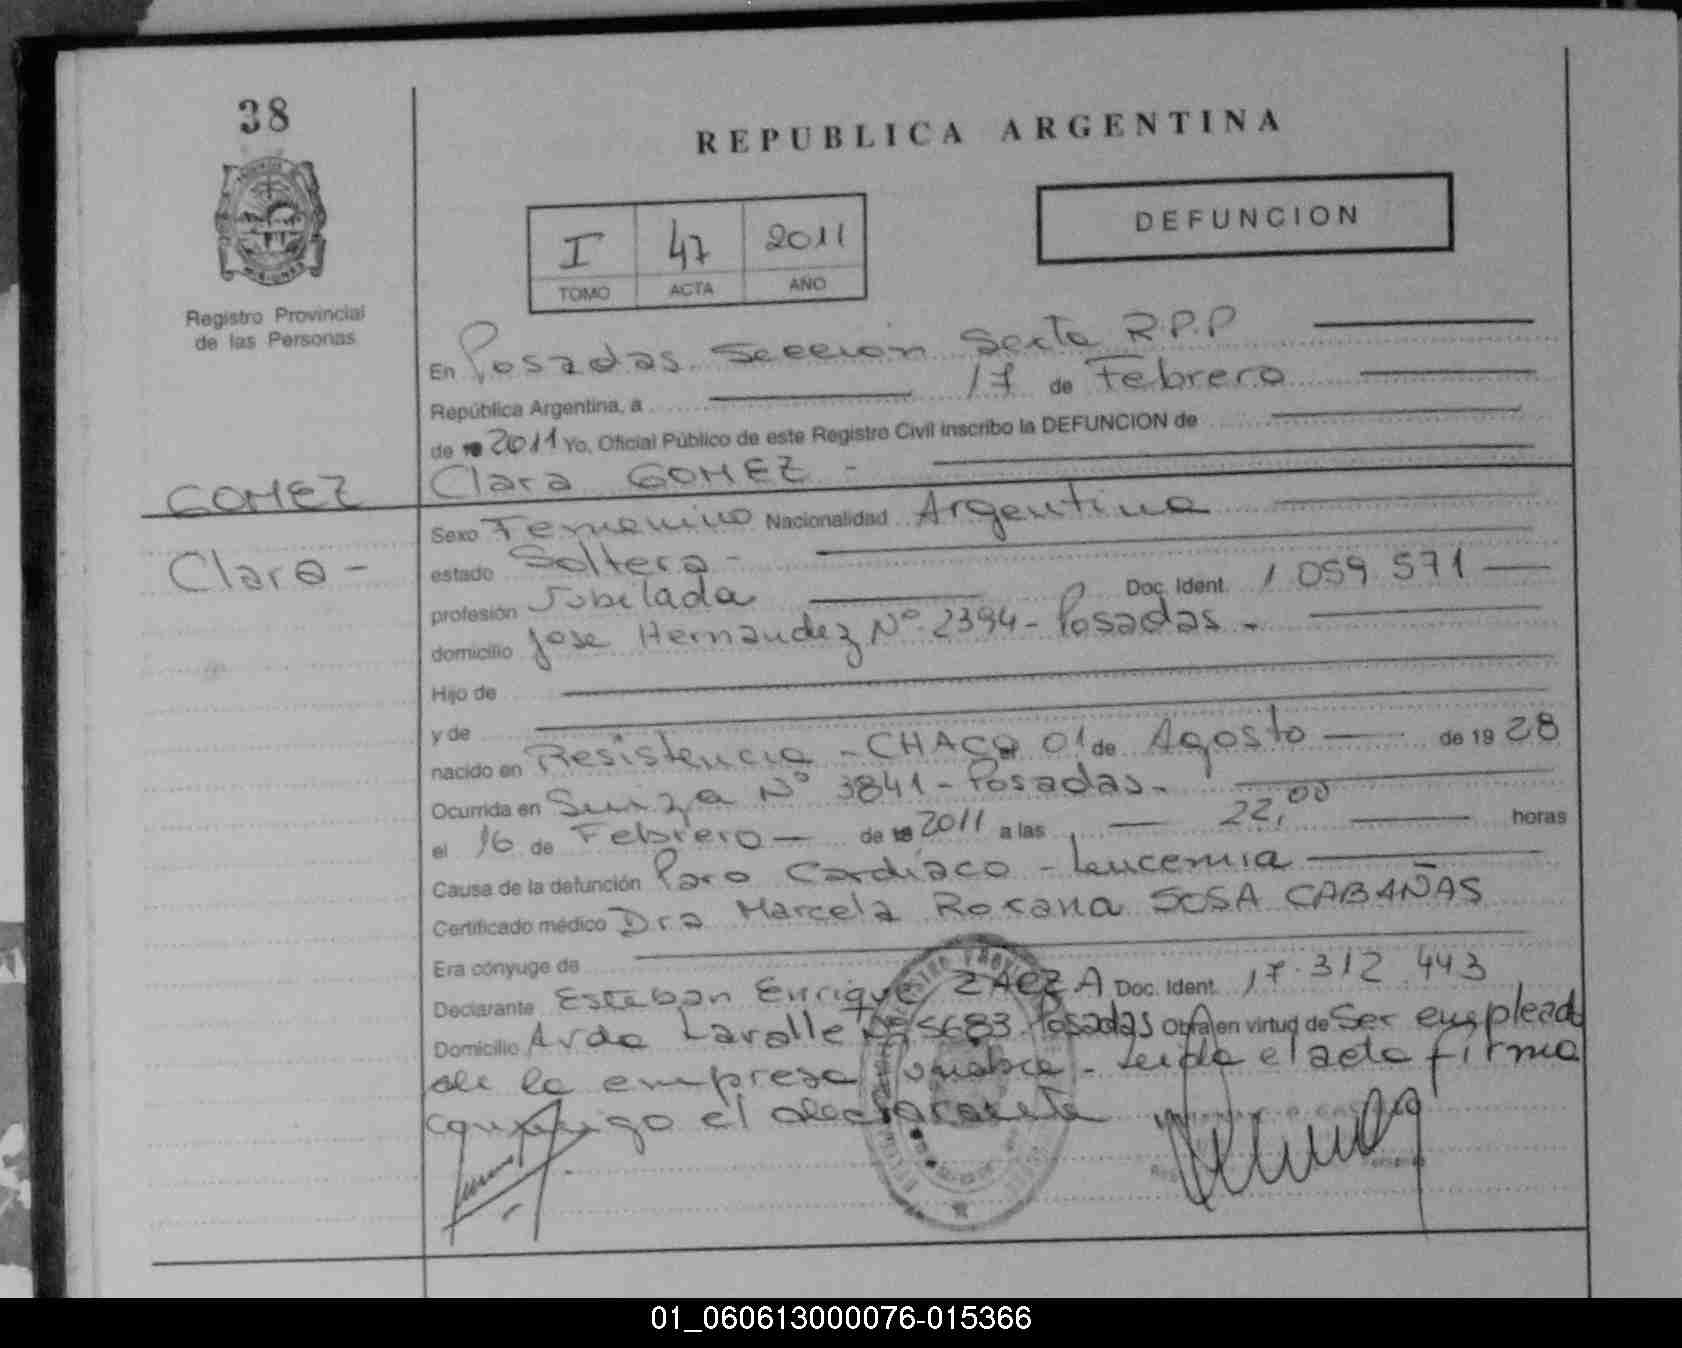 38
REPUBLICA ARGENTINA
MISIONES
Registro Provincial
de las Personas
DEFUNCION
I 47 2011
TOMO ACTA AÑO
En Posadas Sección Sexta R.P.P
República Argentina, a 17 de Febrero
de 2011 Yo, Oficial Público de este Registro Civil inscribo la DEFUNCION de
Clara GOMEZ -
GOMEZ
Clara -
Sexo Femenino Nacionalidad Argentina
estado Soltera -
profesión Jubilada Doc. Ident. 1 059 571
domicilio Jose Hernandez Nº 2394 - Posadas -
Hijo de
y de
nacido en Resistencia - CHACO 01 de Agosto de 1928
Ocurrida en Suiza Nº 3841 - Posadas -
el 16 de Febrero - de 2011 a las 22,00 horas
Causa de la defunción Paro Cardíaco - Leucemia
Certificado médico Dra Marcela Roxana SOSA CABAÑAS
Era cónyuge de
Declarante Esteban Enrique Doc. Ident. 17.312.443
Domicilio Avda Lavalle Nº 5683 Posadas Obra en virtud de Ser empleado
de la empresa fúnebre - Leída el acta firma
conmigo el declarante
01_060613000076-015366